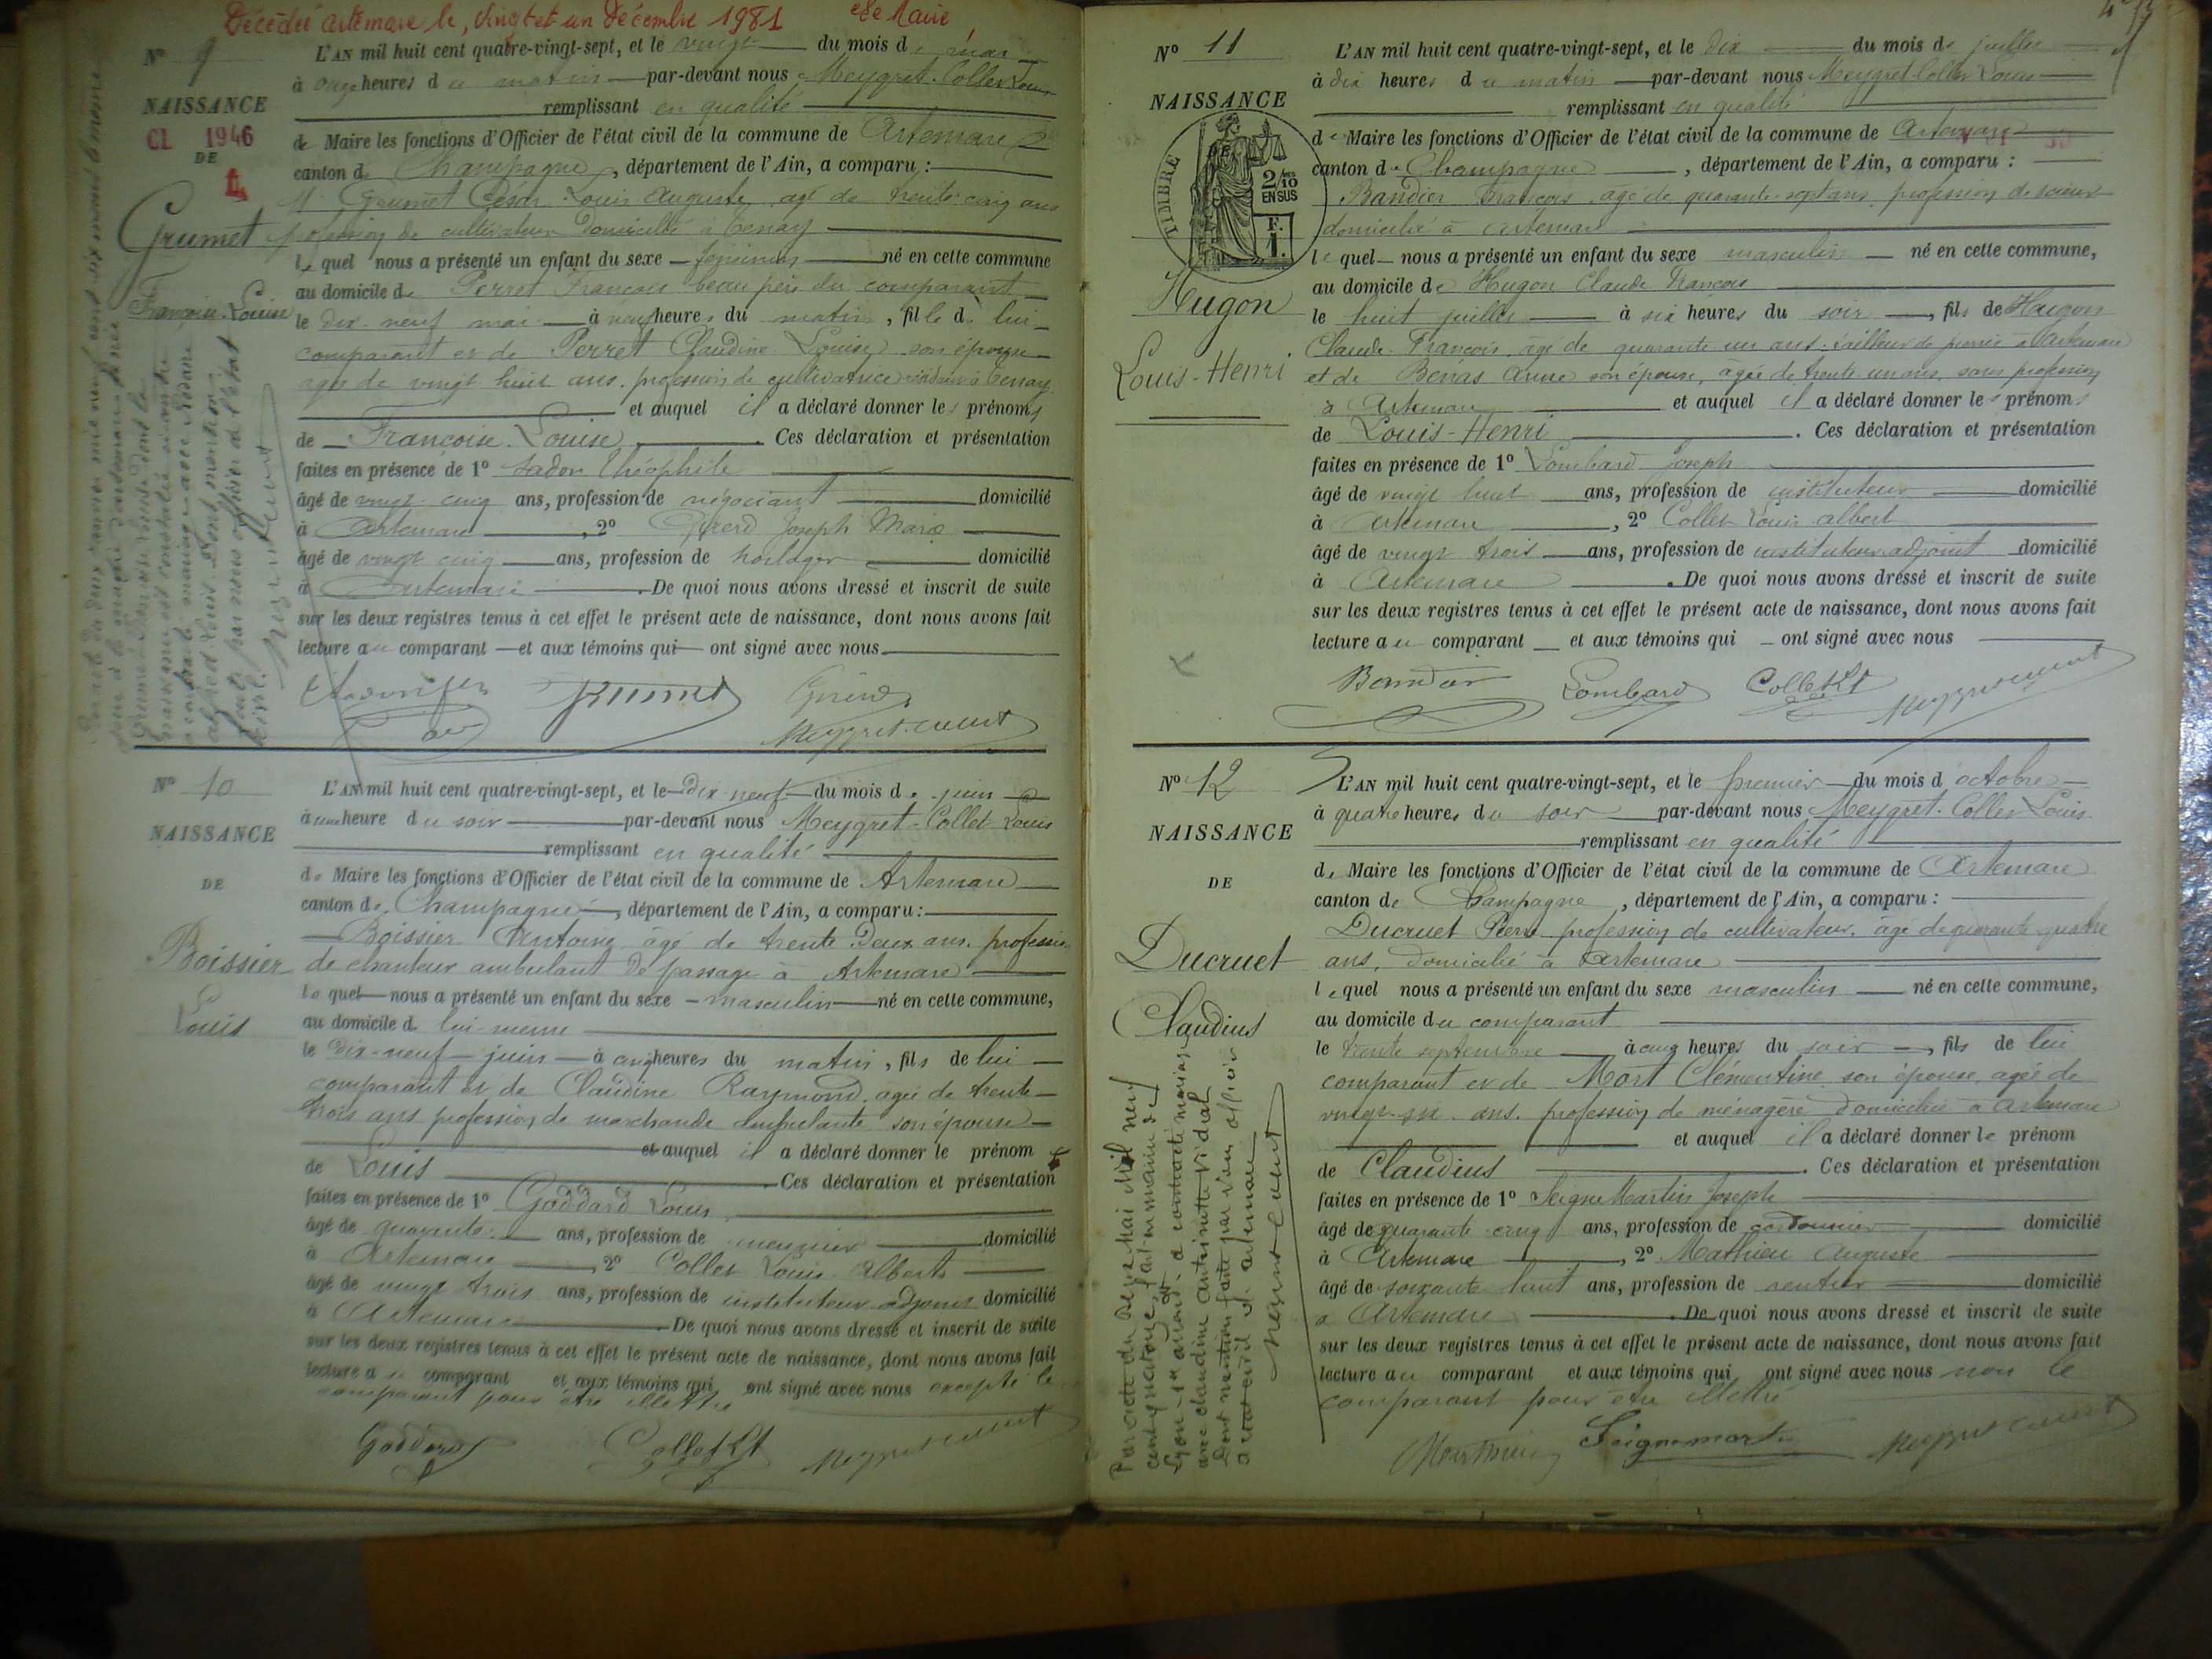 Décédée artemare le, vingt et un Décembre 1981 Le Maire
N° 9
NAISSANCE
CL 1946
DE
L
Grumet
Françoise-Louise
L'AN mil huit cent quatre-vingt-sept, et le vingt du mois de mai
à onze heures du matin par-devant nous Meygret-Collet Louis
remplissant en qualité
de Maire les fonctions d'Officier de l'état civil de la commune de Artemare
canton de Champagne, département de l'Ain, a comparu :
Mr Grumet César Louis Auguste, agé de trente cinq ans
profession de cultivateur domicilié à Tenay
lequel nous a présenté un enfant du sexe féminin né en cette commune
au domicile de Perret François beau père du comparant
le dix-neuf mai à neuf heures du matin, fille de lui
comparant et de Perret Claudine Louise son épouse
agée de vingt huit ans, profession de cultivatrice à Tenay
et auquel il a déclaré donner les prénoms
de Françoise Louise. Ces déclaration et présentation
faites en présence de 1° Théophile
âgé de vingt cinq ans, profession de négociant domicilié
à Artemare, 2° Girerd Joseph Marie
âgé de vingt cinq ans, profession de horloger domicilié
à Artemare. De quoi nous avons dressé et inscrit de suite
sur les deux registres tenus à cet effet le présent acte de naissance, dont nous avons fait
lecture au comparant et aux témoins qui ont signé avec nous
Grumet Girerd
Meygret-Collet
N° 10
NAISSANCE
DE
Boissier
Louis
L'AN mil huit cent quatre-vingt-sept, et le dix neuf du mois de juin
à une heure du soir par-devant nous Meygret-Collet Louis
remplissant en qualité
de Maire les fonctions d'Officier de l'état civil de la commune de Artemare
canton de Champagne, département de l'Ain, a comparu :
Boissier Antoine âgé de trente deux ans, profession
de chanteur ambulant de passage à Artemare
lequel nous a présenté un enfant du sexe masculin né en cette commune,
au domicile de lui même
le dix-neuf juin à cinq heures du matin, fils de lui
comparant et de Claudine Raymond, agée de trente
trois ans profession de marchande ambulante son épouse
et auquel il a déclaré donner le prénom
de Louis. Ces déclaration et présentation
faites en présence de 1° Goddard Louis
âgé de quarante ans, profession de meunier domicilié
à Artemare, 2° Collet Louis Albert
âgé de vingt trois ans, profession de instituteur adjoint domicilié
à Artemare. De quoi nous avons dressé et inscrit de suite
sur les deux registres tenus à cet effet le présent acte de naissance, dont nous avons fait
lecture au comparant et aux témoins qui ont signé avec nous excepté le
comparant pour être illettré
Goddard Collet Lt Meygret-Collet
N° 11
NAISSANCE
TIMBRE
2/10 EN SUS
F. 1.
Hugon
Louis-Henri
L'AN mil huit cent quatre-vingt-sept, et le dix du mois de juillet
à dix heures du matin par-devant nous Meygret-Collet Louis
remplissant en qualité
de Maire les fonctions d'Officier de l'état civil de la commune de Artemare
canton de Champagne, département de l'Ain, a comparu :
Baudier François agé de quarante-sept ans, profession de
domicilié à Artemare
lequel nous a présenté un enfant du sexe masculin né en cette commune,
au domicile de Hugon Claude François
le huit juillet à six heures du soir, fils de Hugon
Claude-François, âgé de quarante un ans, tailleur de pierres à Artemare
et de Bénas Anne son épouse, âgée de trente un ans, sans profession
à Artemare et auquel il a déclaré donner les prénoms
de Louis-Henri. Ces déclaration et présentation
faites en présence de 1° Lombard Joseph
âgé de vingt huit ans, profession de instituteur domicilié
à Artemare, 2° Collet Louis Albert
âgé de vingt trois ans, profession de instituteur adjoint domicilié
à Artemare. De quoi nous avons dressé et inscrit de suite
sur les deux registres tenus à cet effet le présent acte de naissance, dont nous avons fait
lecture au comparant et aux témoins qui ont signé avec nous
Baudier Lombard Collet Lt Meygret-Collet
N° 12
NAISSANCE
DE
Ducruet
Claudius
L'AN mil huit cent quatre-vingt-sept, et le premier du mois d'octobre
à quatre heures du soir par-devant nous Meygret-Collet Louis
remplissant en qualité
de Maire les fonctions d'Officier de l'état civil de la commune de Artemare
canton de Champagne, département de l'Ain, a comparu :
Ducruet Pierre profession de cultivateur, âgé de quarante quatre
ans, domicilié à Artemare
lequel nous a présenté un enfant du sexe masculin né en cette commune,
au domicile du comparant
le trente septembre à cinq heures du soir, fils de lui
comparant et de Mort Clémentine son épouse, agée de
vingt-six ans, profession de ménagère domiciliée à Artemare
et auquel il a déclaré donner le prénom
de Claudius. Ces déclaration et présentation
faites en présence de 1° Seigne Martin Joseph
âgé de quarante cinq ans, profession de cordonnier domicilié
à Artemare, 2° Mathieu Auguste
âgé de soixante huit ans, profession de rentier domicilié
à Artemare. De quoi nous avons dressé et inscrit de suite
sur les deux registres tenus à cet effet le présent acte de naissance, dont nous avons fait
lecture au comparant et aux témoins qui ont signé avec nous non le
comparant pour être illettré
Seignemartin Meygret-Collet